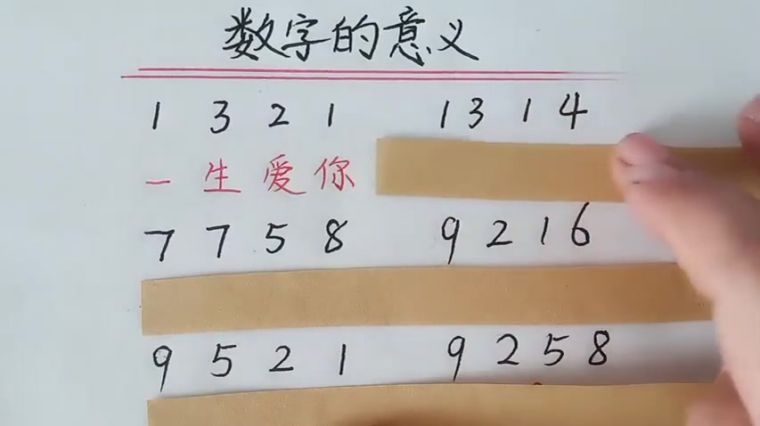 数字的意义
1 3 2 1 1 3 1 4
一生爱你
7 7 5 8 9 2 1 6
9 5 2 1 9 2 5 8